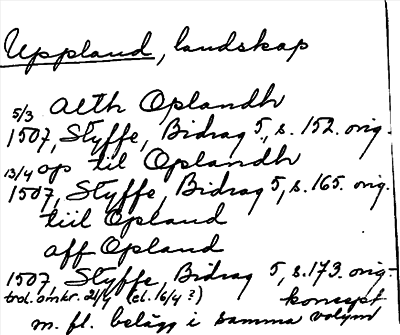 Uppland, landskap
5/3 alth Oplandh
1507, Styffe, Bidrag 5, s. 152. orig.
13/4 op til Oplandh
1507, Styffe, Bidrag 5, s. 165. orig.
tiil Opland
aff Opland
1507, Styffe, Bidrag 5, s. 173. orig-
trol. omkr. 21/4 (el. 16/4?) koncept
m. fl. belägg i samma volym